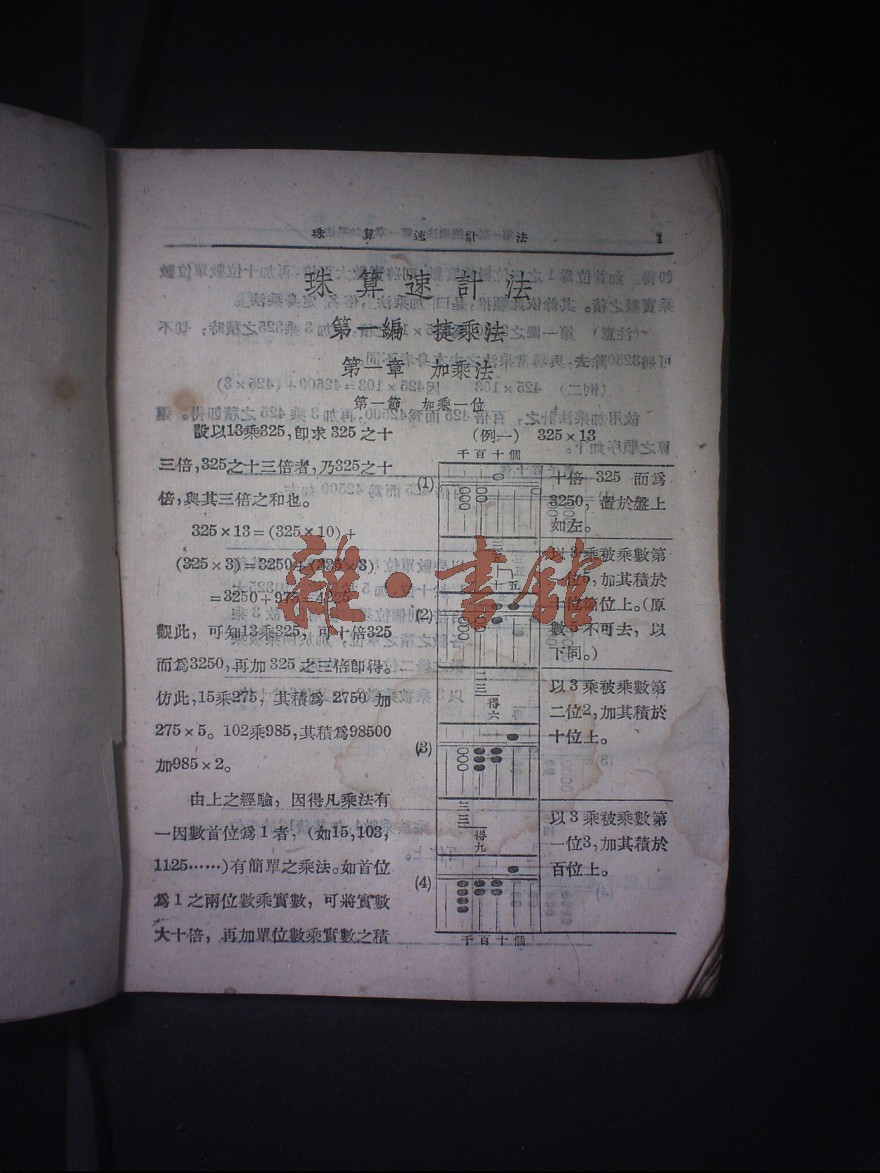 珠算速計法 1
珠算速計法
第一編 捷乘法
第一章 加乘法
第一節 加乘一位
設以13乘325,卽求 325 之十
三倍,325之十三倍者,乃325之十
倍,與其三倍之和也。
325×13=(325×10)+
(325×3)=3250+(325×3)
=3250+975=4225
觀此,可知13乘325,可十倍325
而爲3250,再加 325 之三倍卽得。
仿此,15乘275,其積爲 2750 加
275×5。102乘985,其積爲98500
加985×2。
由上之經驗,因得凡乘法有
一因數首位爲1者,(如15,103,
1125……)有簡單之乘法。如首位
爲1之兩位數乘實數,可將實數
大十倍,再加單位數乘實數之積
(例一) 325×13
千百十個
(1)
十倍 325 而爲
3250,置於盤上
如左。
三五
十五
(2)
以3乘被乘數第
一位5,加其積於
十位個位上。(原
數5不可去,以
下同。)
二三
得六
(3)
以3乘被乘數第
二位2,加其積於
十位上。
三三
得九
(4)
以3乘被乘數第
一位3,加其積於
百位上。
千百十個
雜·書館